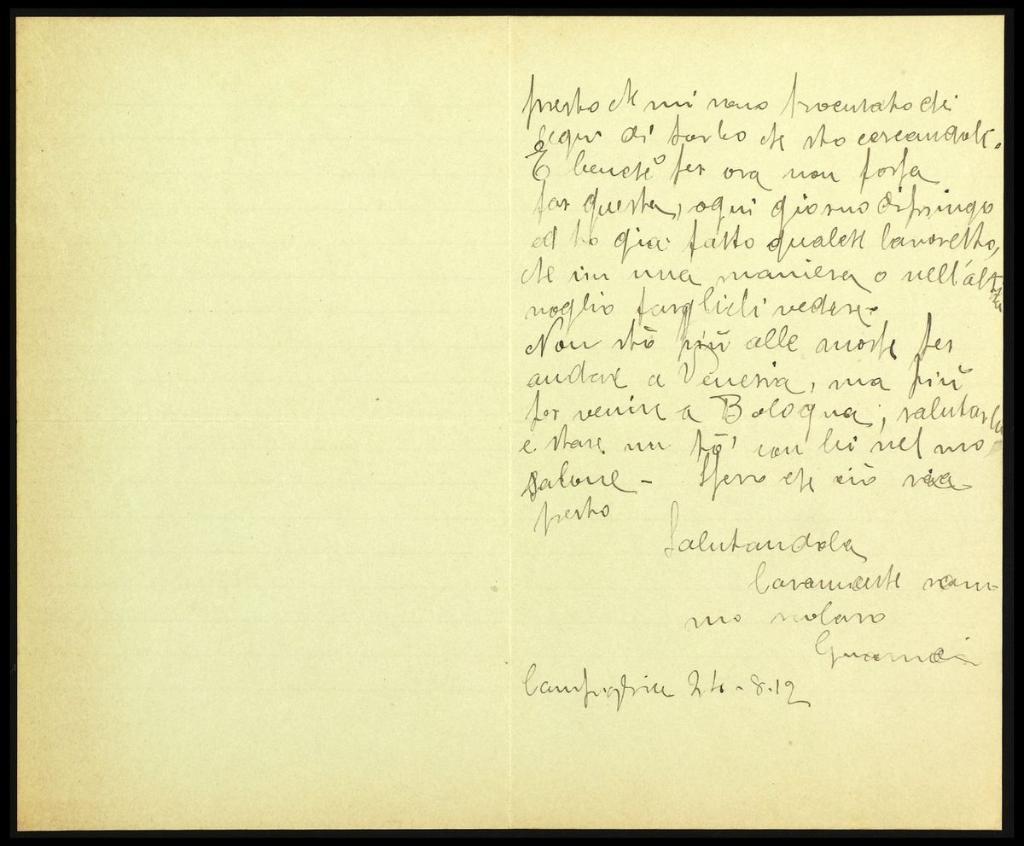 presto che mi sono procurato dei
legni di bosso che sto cercandoli.
E benchè per ora non possa
far questa, ogni giorno dipingo
ed ho gia fatto qualche lavoretto,
che in una maniera o nell'altra
voglio farglieli vedere.
Non stò più alle mosse per
andare a Venezia, ma più
per venire a Bologna, salutarla
e stare un pò con lei nel suo
salone - Spero che ciò sia
presto
Salutandola
Caramente sono
suo scolaro
24-8-12